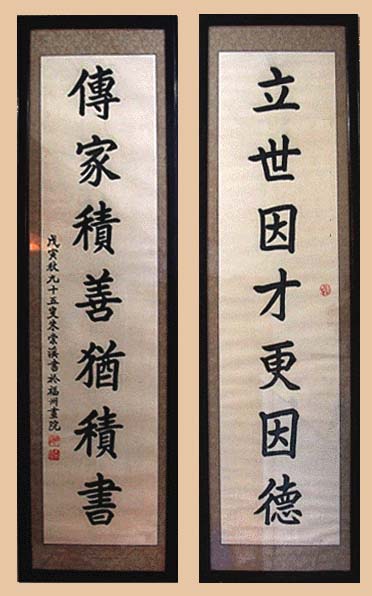 立世因才更因德
傳家積善猶積書
戊寅秋九十五叟朱棠溪書於福州畫院